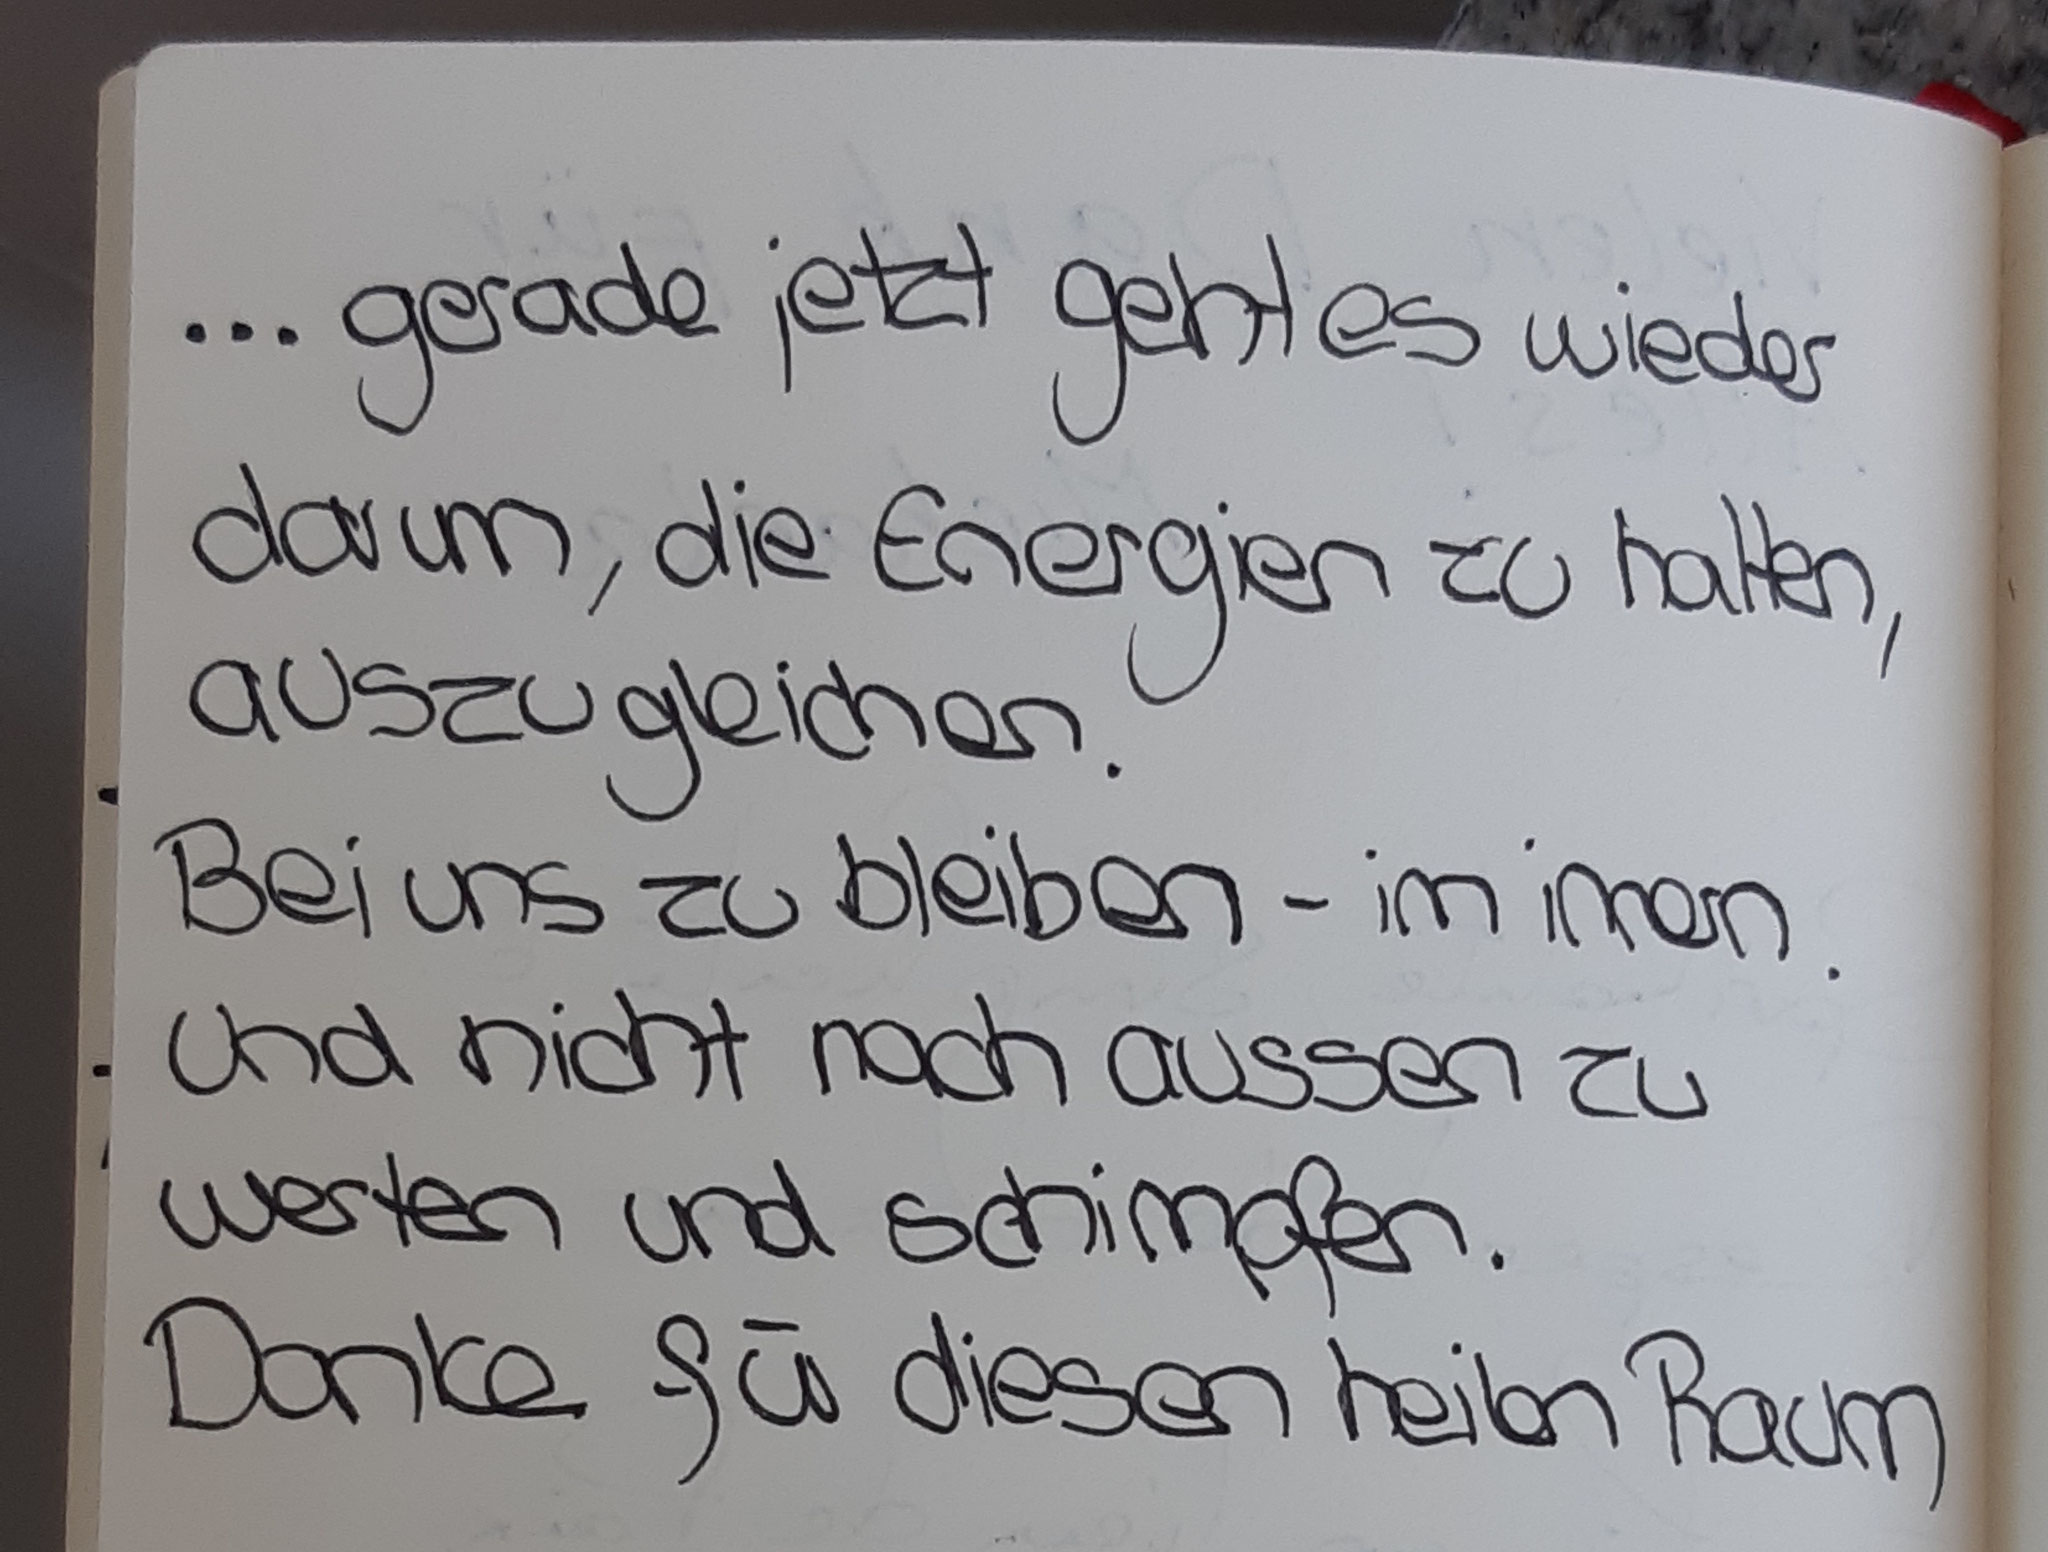 ... gerade jetzt geht es wieder
darum, die Energien zu halten,
auszugleichen.
Bei uns zu bleiben - im innen.
und nicht nach aussen zu
werten und schimpfen.
Danke für diesen heilen Raum